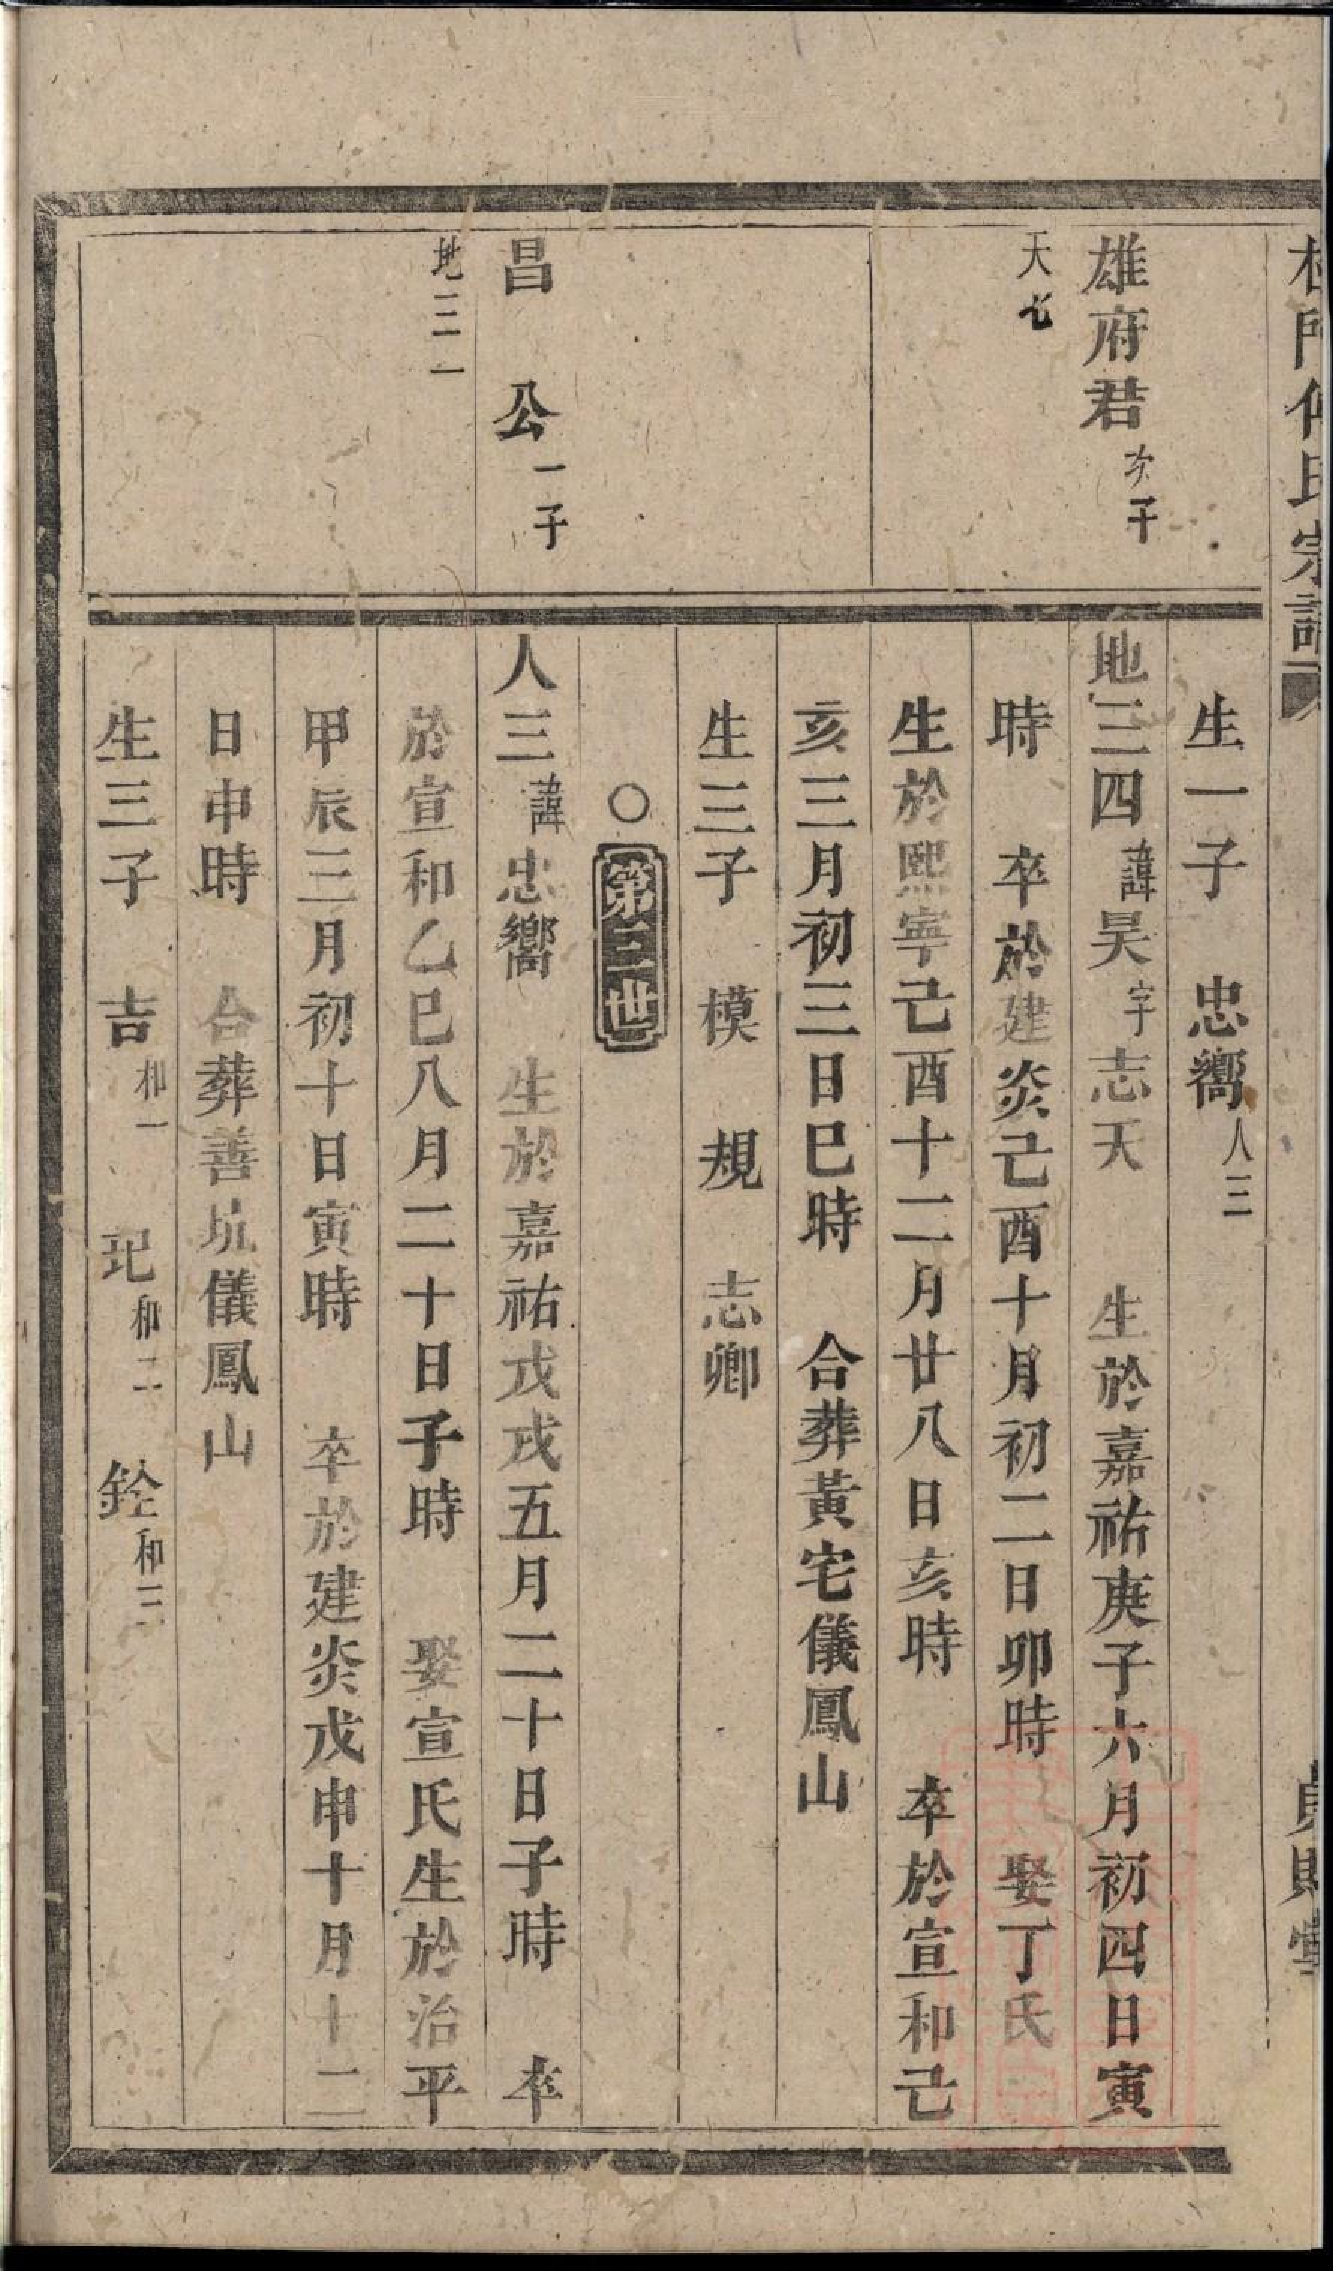 氏宗譜
生一子　忠嚮人三
雄府君次子
天七
地三四諱昊字志天　生於嘉祐庚子六月初四日寅
時　卒於建炎己酉十月初二日卯時　娶丁氏
生於熙寧己酉十二月廿八日亥時　卒於宣和己
亥三月初三日巳時　合葬黃宅儀鳳山
生三子　模　規　志卿
○第三世
昌公一子
地三一
人三諱忠嚮　生於嘉祐戊戌五月二十日子時　卒
於宣和乙巳八月二十日子時　娶宣氏生於治平
甲辰三月初十日寅時　卒於建炎戊申十月十二
日申時　合葬善坑儀鳳山
生三子　吉和一　玘和二　銓和三